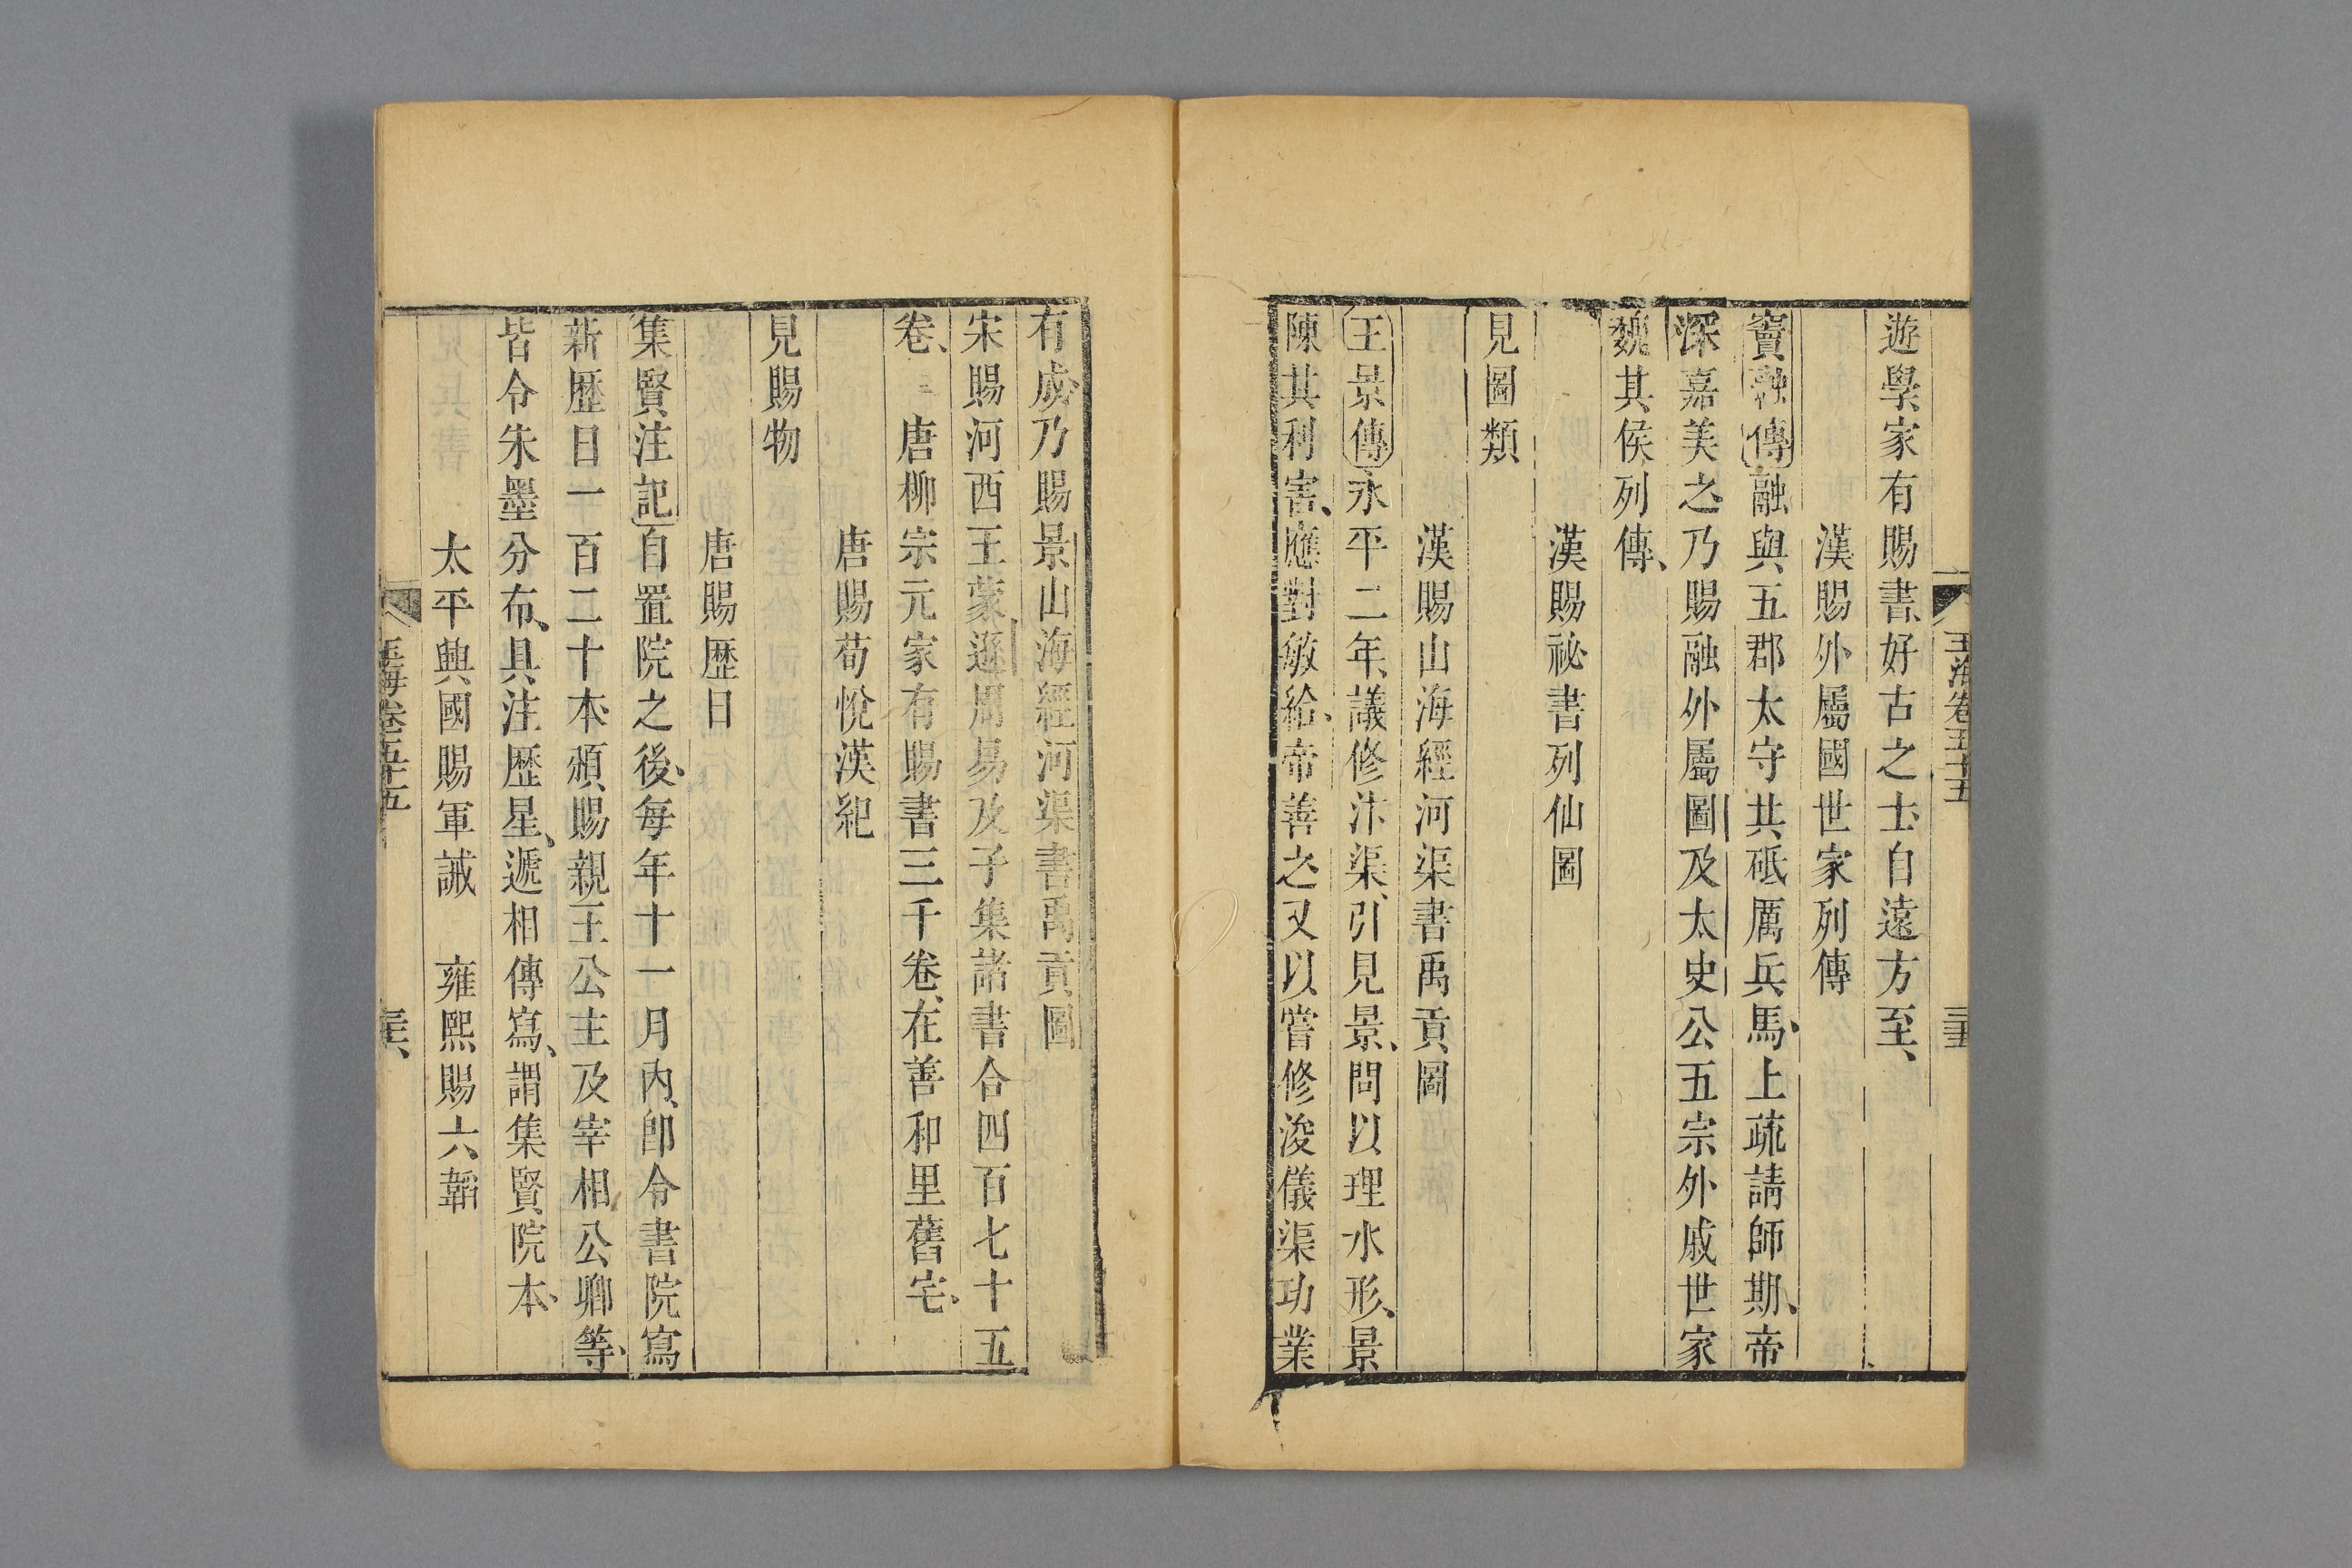 玉海卷五十五
三十五
遊學、家有賜書、好古之士、自遠方至、
漢賜外屬國世家列傳
竇融傳融與五郡太守共砥厲兵馬、上疏請師期、帝
深嘉美之、乃賜融外屬圖及太史公五宗外戚世家
魏其侯列傳、
漢賜祕書列仙圖
見圖類
漢賜山海經河渠書禹貢圖
王景傳永平二年、議修汴渠、引見景、問以理水形、景
陳其利害、應對敏給、帝善之又以嘗修浚儀渠功業
有成、乃賜景山海經河渠書禹貢圖
宋賜河西王蒙遜周易及子集諸書合四百七十五
卷、 唐柳宗元家有賜書三千卷、在善和里舊宅、
唐賜荀悅漢紀
見賜物
唐賜歷日
集賢注記自置院之後、每年十一月內、卽令書院寫
新歷日一百二十本、頒賜親王公主及宰相公卿等、
皆令朱墨分布、具注歷星、遞相傳寫、謂集賢院本、
太平興國賜軍誡 雍熙賜六韜
玉海卷五十五